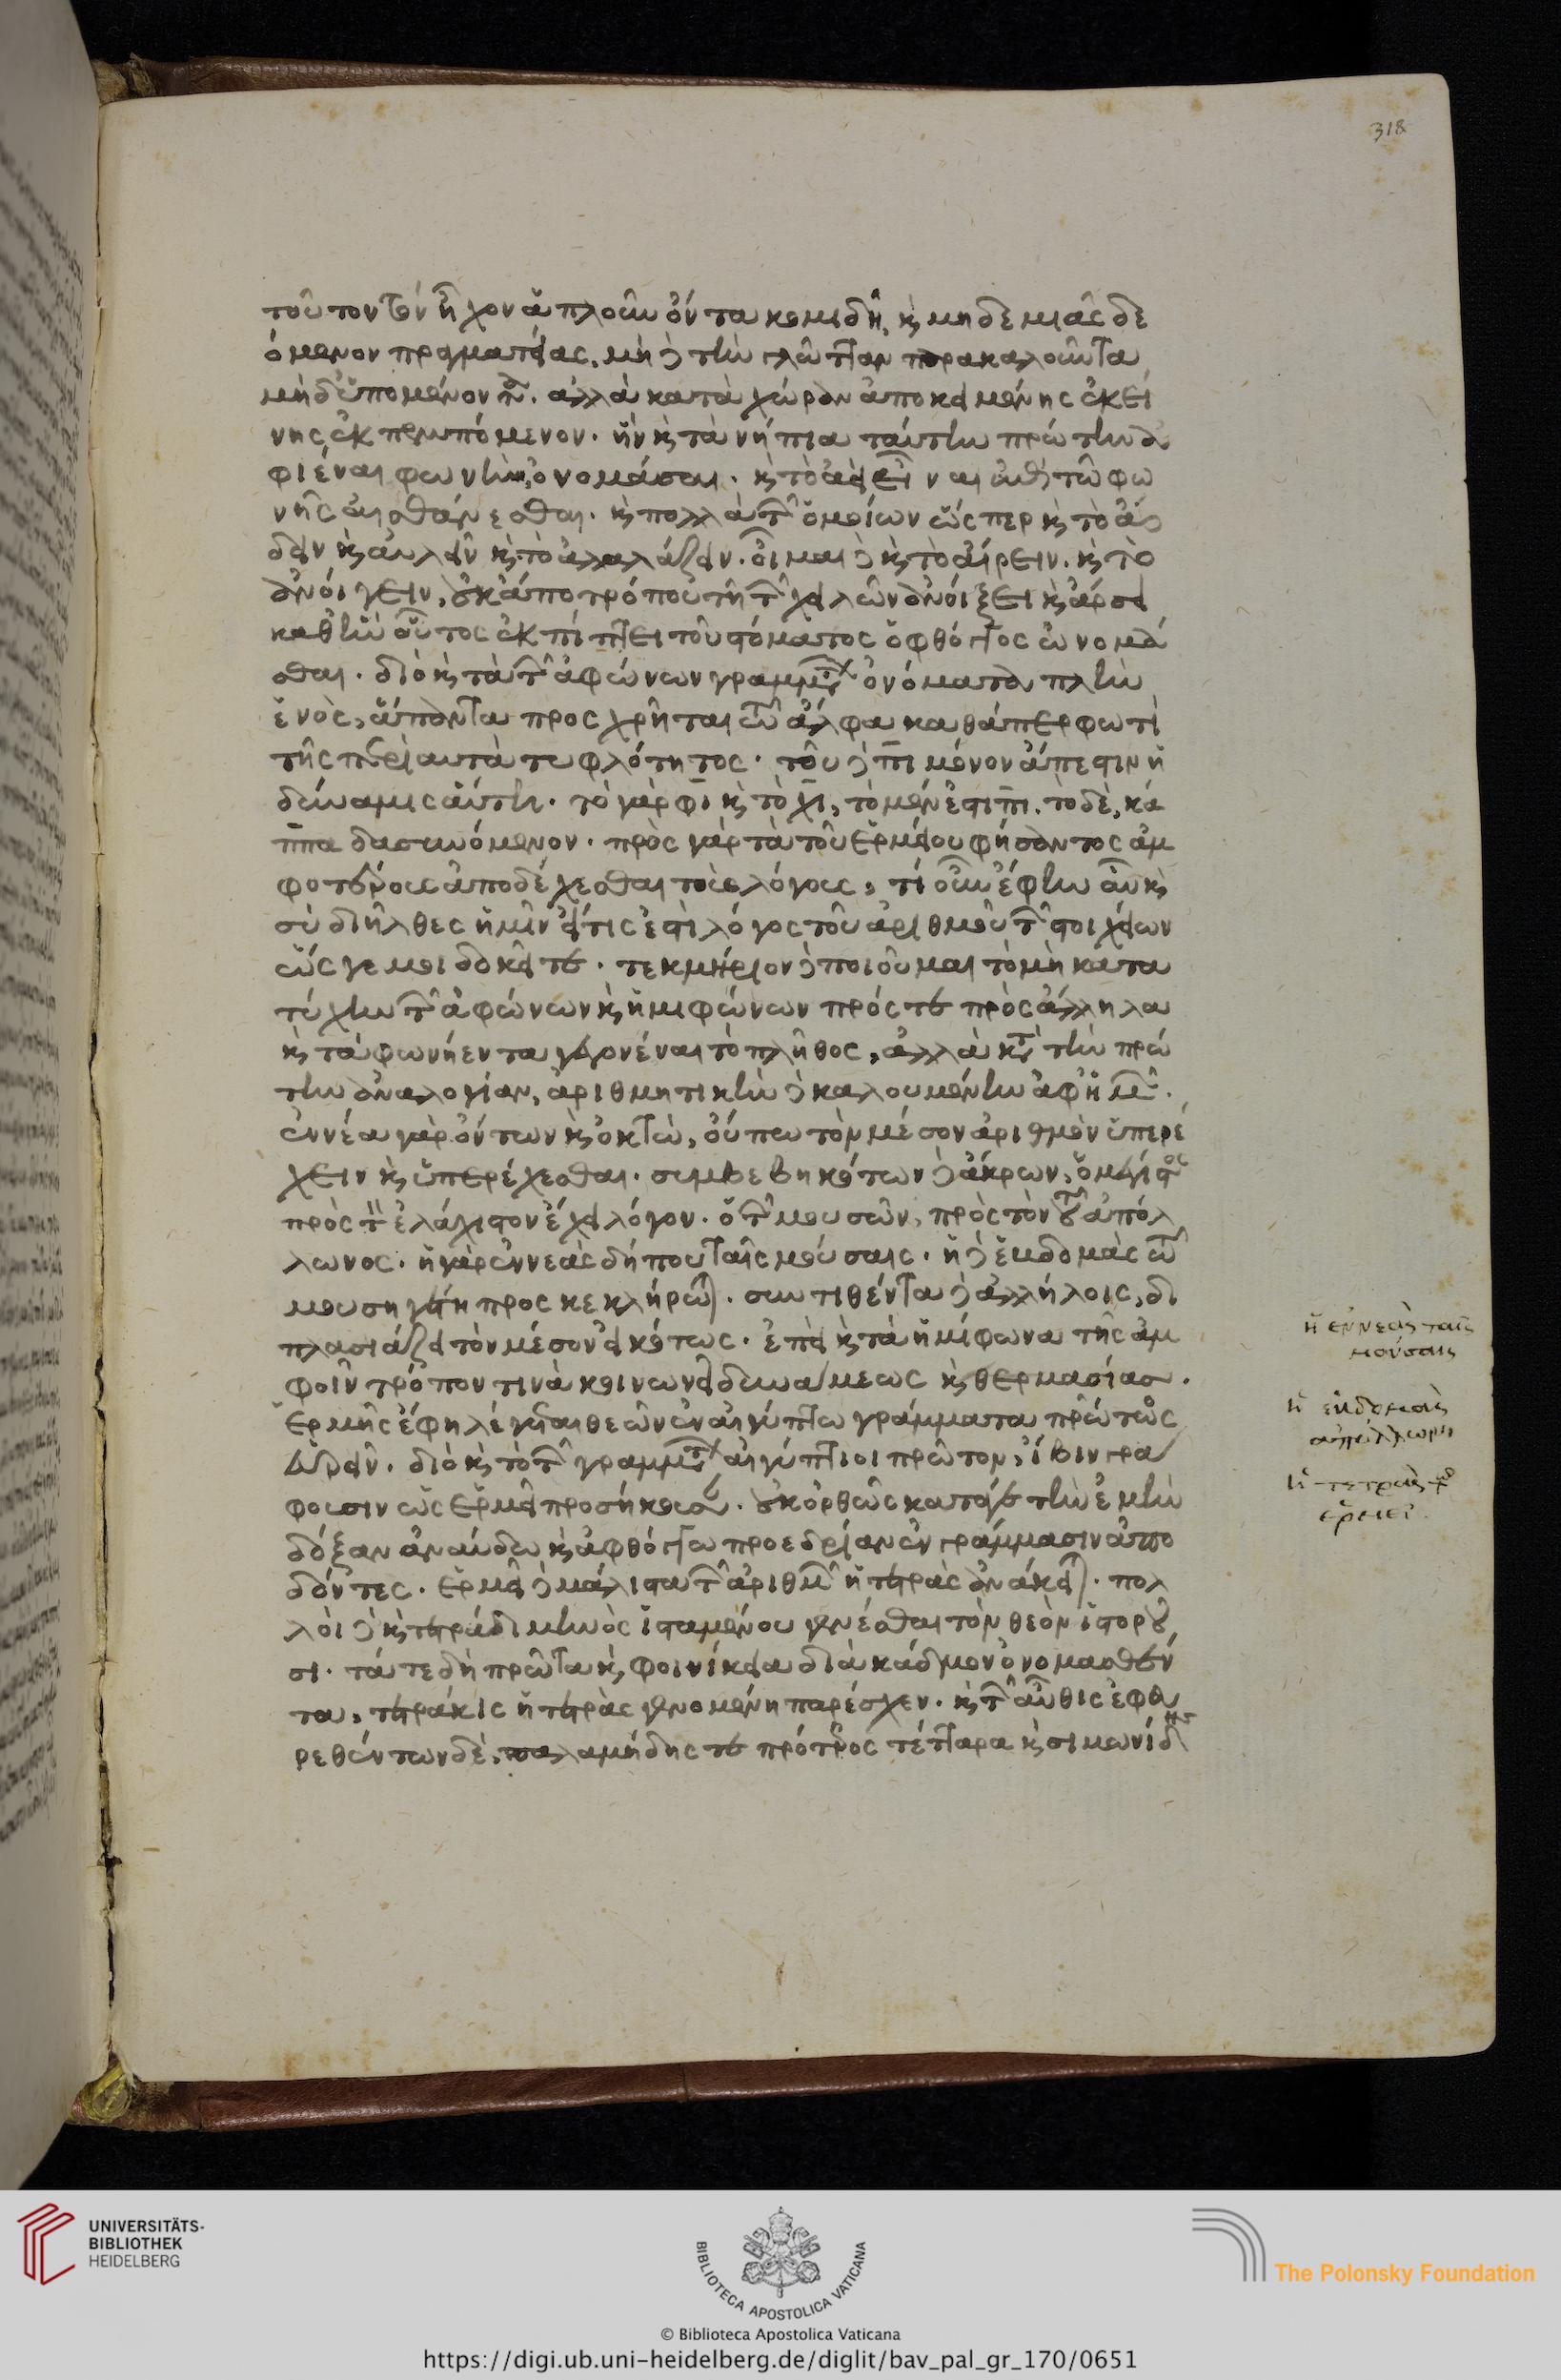 318
τοῦτον τὸν ἦχον ἁπλοῦν ὄντα κομιδῆ, ϗ μηδεμιᾶς δε
όμενον πραγματείας, μὴ δὲ τὴν γλῶτταν παρακαλοῦντα
ἀλλὰ κατὰ χώραν ἀποκειμένης ἐκεί
νης ἐκπεμπόμενον. ᾗ ϗ τὰ νήπια ταύτην πρώτην ἀ
φιέναι φωνὴν. ὀνομάσαι. ϗ τὸ ἀΐειν
νῆς αἰσθάνεσθαι. ϗ πολλὰ τῶν ὁμοίων ὥσπερ ϗ τὸ ᾄ
δειν ϗ αὐλεῖν ϗ τὸ ἀλαλάζειν. οἶμαι δὲ ϗ τὸ αἴρειν. ϗ τὸ
ἀνοίγειν, οὐκ ἀπὸ τρόπου τῇ τῶν χειλῶν ἀνοίξει ϗ ἄρσει
καθ' ἣν οὗτος ἐκπίπτει τοῦ στόματος ὁ φθόγγος ὠνομά
σθαι. διὸ ϗ τὰ τῶν ἀφώνων γραμμάτων ὀνόματα πλὴν
ἑνὸς, ἅπαντα προσχρῆται τῷ ἄλφα καθάπερ φωτὶ
τῆς περὶ αὐτὰ τυφλότητος. τοῦ δὲ πῖ μόνον ἄπεστιν ἡ
δύναμις αὕτη. τὸ γὰρ φῖ ϗ τὸ χῖ, τὸ μὲν ἐστι πῖ. τὸ δὲ, κά
ππα δασυνόμενον. πρὸς γὰρ τὰ τοῦ Ἑρμείου φήσαντος ἀμ
φοτέρους ἀποδέχεσθαι τοὺς λόγους, τί οὖν ἔφην οὐ ϗ
σὺ διῆλθες ἡμῖν εἴ τις ἐστὶ λόγος τοῦ ἀριθμοῦ τῶν στοιχείων
ὥς γε μοι δοκεῖ τε. τεκμήριον δὲ ποιοῦμαι τὸ μὴ κατὰ
τύχην τῶν ἀφώνων ϗ ἡμιφώνων πρός τε πρὸς ἄλληλα
ϗ τὰ φωνήεντα γεγονέναι τὸ πλῆθος, ἀλλὰ κατὰ τὴν πρώ
την ἀναλογίαν, ἀριθμητικὴν δὲ καλουμένην ἀφ' ἡμῶν.
ἐννέα γὰρ ὄντων ϗ ὀκτὼ, οὕτω τὸν μέσον ἀριθμὸν ὑπερέ
χειν ϗ ὑπερέχεσθαι. συμβεβηκότων δὲ ἄκρων, ὁ μέγιστος
πρὸς τὸν ἐλάχιστον ἔχει λόγον. ὁ τῶν μουσῶν, πρὸς τὸν τοῦ ἀπόλ
λωνος. ἡ γὰρ ἐννεὰς δήπου ταῖς μούσαις. ἡ δὲ ἑβδομὰς τῷ
μουσηγέτῃ προσκεκλήρωται. συντιθέντα δὲ ἀλλήλοις, δι
πλασιάζει τὸν μέσον εἰκότως. ἐπεὶ ϗ τὰ ἡμίφωνα τῆς ἀμ
φοῖν τρόπον τινὰ κοινωνεῖ δυνάμεως
Ἑρμῆς ἔφη λέγεται θεῶν ἐν αἰγύπτω γράμματα πρῶτος
εὑρεῖν. διὸ ϗ τὸ τῶν γραμμάτων αἰγύπτιοι πρῶτον, ἴβιν γρά
φουσιν ὡς Ἑρμεῖ προσήκουσαν. οὐκ ὀρθῶς κατά γε τὴν ἐμὴν
δόξαν ἀναύδω ϗ ἀφθόγγω προεδρίαν ἐν γράμμασιν ἀπο
δόντες. Ἑρμεῖ δὲ μάλιστα τῶν ἀριθμῶν ἡ τετρὰς ἀνάκειται. πολ
λοὶ δὲ ϗ τετράδι μηνὸς ἱσταμένου γενέσθαι τὸν θεὸν ἱστοροῦ
σι. τά τε δὴ πρῶτα ϗ φοινίκεια διὰ κάδμον ὀνομασθέν
τα, τετράκις ἡ τετρὰς γενομένη παρέσχεν. ϗ τῶν αὖθις ἐφευ
ρεθέντων δὲ, παλαμήδης τε πρότερος τέτταρα ϗ σιμωνίδης
ἡ ἐννεὰς ταῖς
μούσαις
ἡ ἑβδομὰς
ἀπόλλωνι
ἡ τετρὰς τῷ
ἑρμεῖ.
UNIVERSITÄTS-
BIBLIOTHEK
HEIDELBERG
BIBLIOTECA APOSTOLICA VATICANA
The Polonsky Foundation
© Biblioteca Apostolica Vaticana
https://digi.ub.uni-heidelberg.de/diglit/bav_pal_gr_170/0651